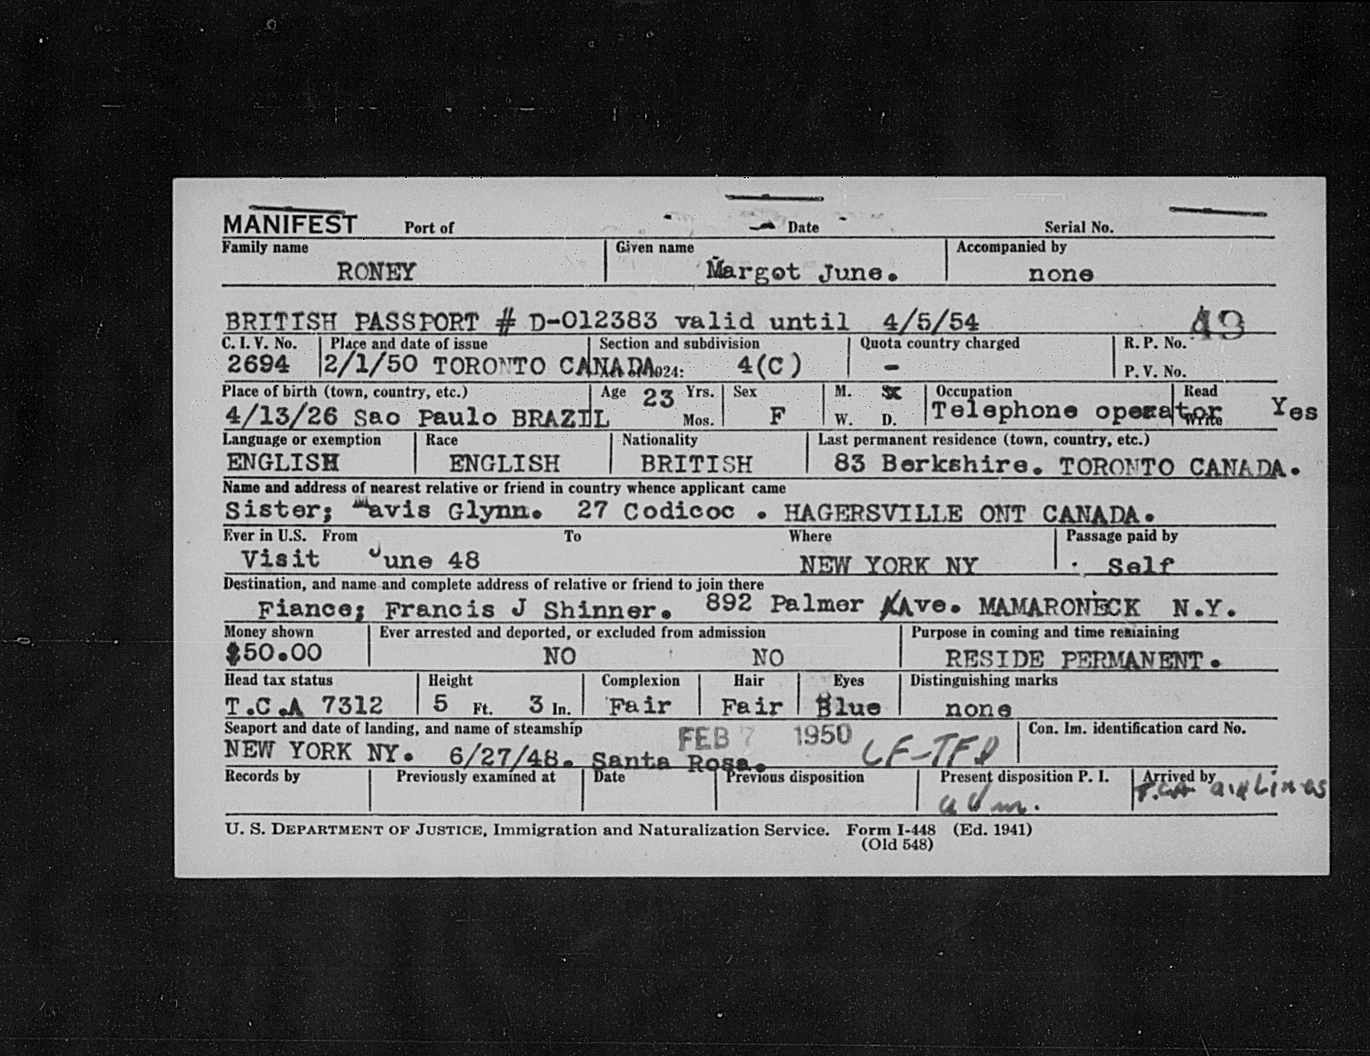 MANIFEST Port of Date Serial No.
Family name Given name Accompanied by
RONEY Margot June. none
BRITISH PASSPORT # D-012383 valid until 4/5/54 49
C. I. V. No. Place and date of issue Section and subdivision Quota country charged R. P. No.
2694 2/1/50 TORONTO CANADA 1924: 4(C) - P. V. No.
Place of birth (town, country, etc.) Age 23 Yrs. Sex M. S. Occupation Read
4/13/26 Sao Paulo BRAZIL Mos. F W. D. Telephone operator Write Yes
Language or exemption Race Nationality Last permanent residence (town, country, etc.)
ENGLISH ENGLISH BRITISH 83 Berkshire. TORONTO CANADA.
Name and address of nearest relative or friend in country whence applicant came
Sister; Mavis Glynn. 27 Codicoc . HAGERSVILLE ONT CANADA.
Ever in U.S. From To Where Passage paid by
Visit June 48 NEW YORK NY Self
Destination, and name and complete address of relative or friend to join there
Fiance; Francis J Shinner. 892 Palmer Ave. MAMARONECK N.Y.
Money shown Ever arrested and deported, or excluded from admission Purpose in coming and time remaining
$50.00 NO NO RESIDE PERMANENT.
Head tax status Height Complexion Hair Eyes Distinguishing marks
T.C.A 7312 5 Ft. 3 In. Fair Fair Blue none
Seaport and date of landing, and name of steamship FEB 7 1950 Con. Im. identification card No.
NEW YORK NY. 6/27/48. Santa Rosa.
Records by Previously examined at Date Previous disposition Present disposition P. I. Arrived by
adm. T.C.A. airlines
U. S. DEPARTMENT OF JUSTICE, Immigration and Naturalization Service. Form I-448 (Ed. 1941)
(Old 548)